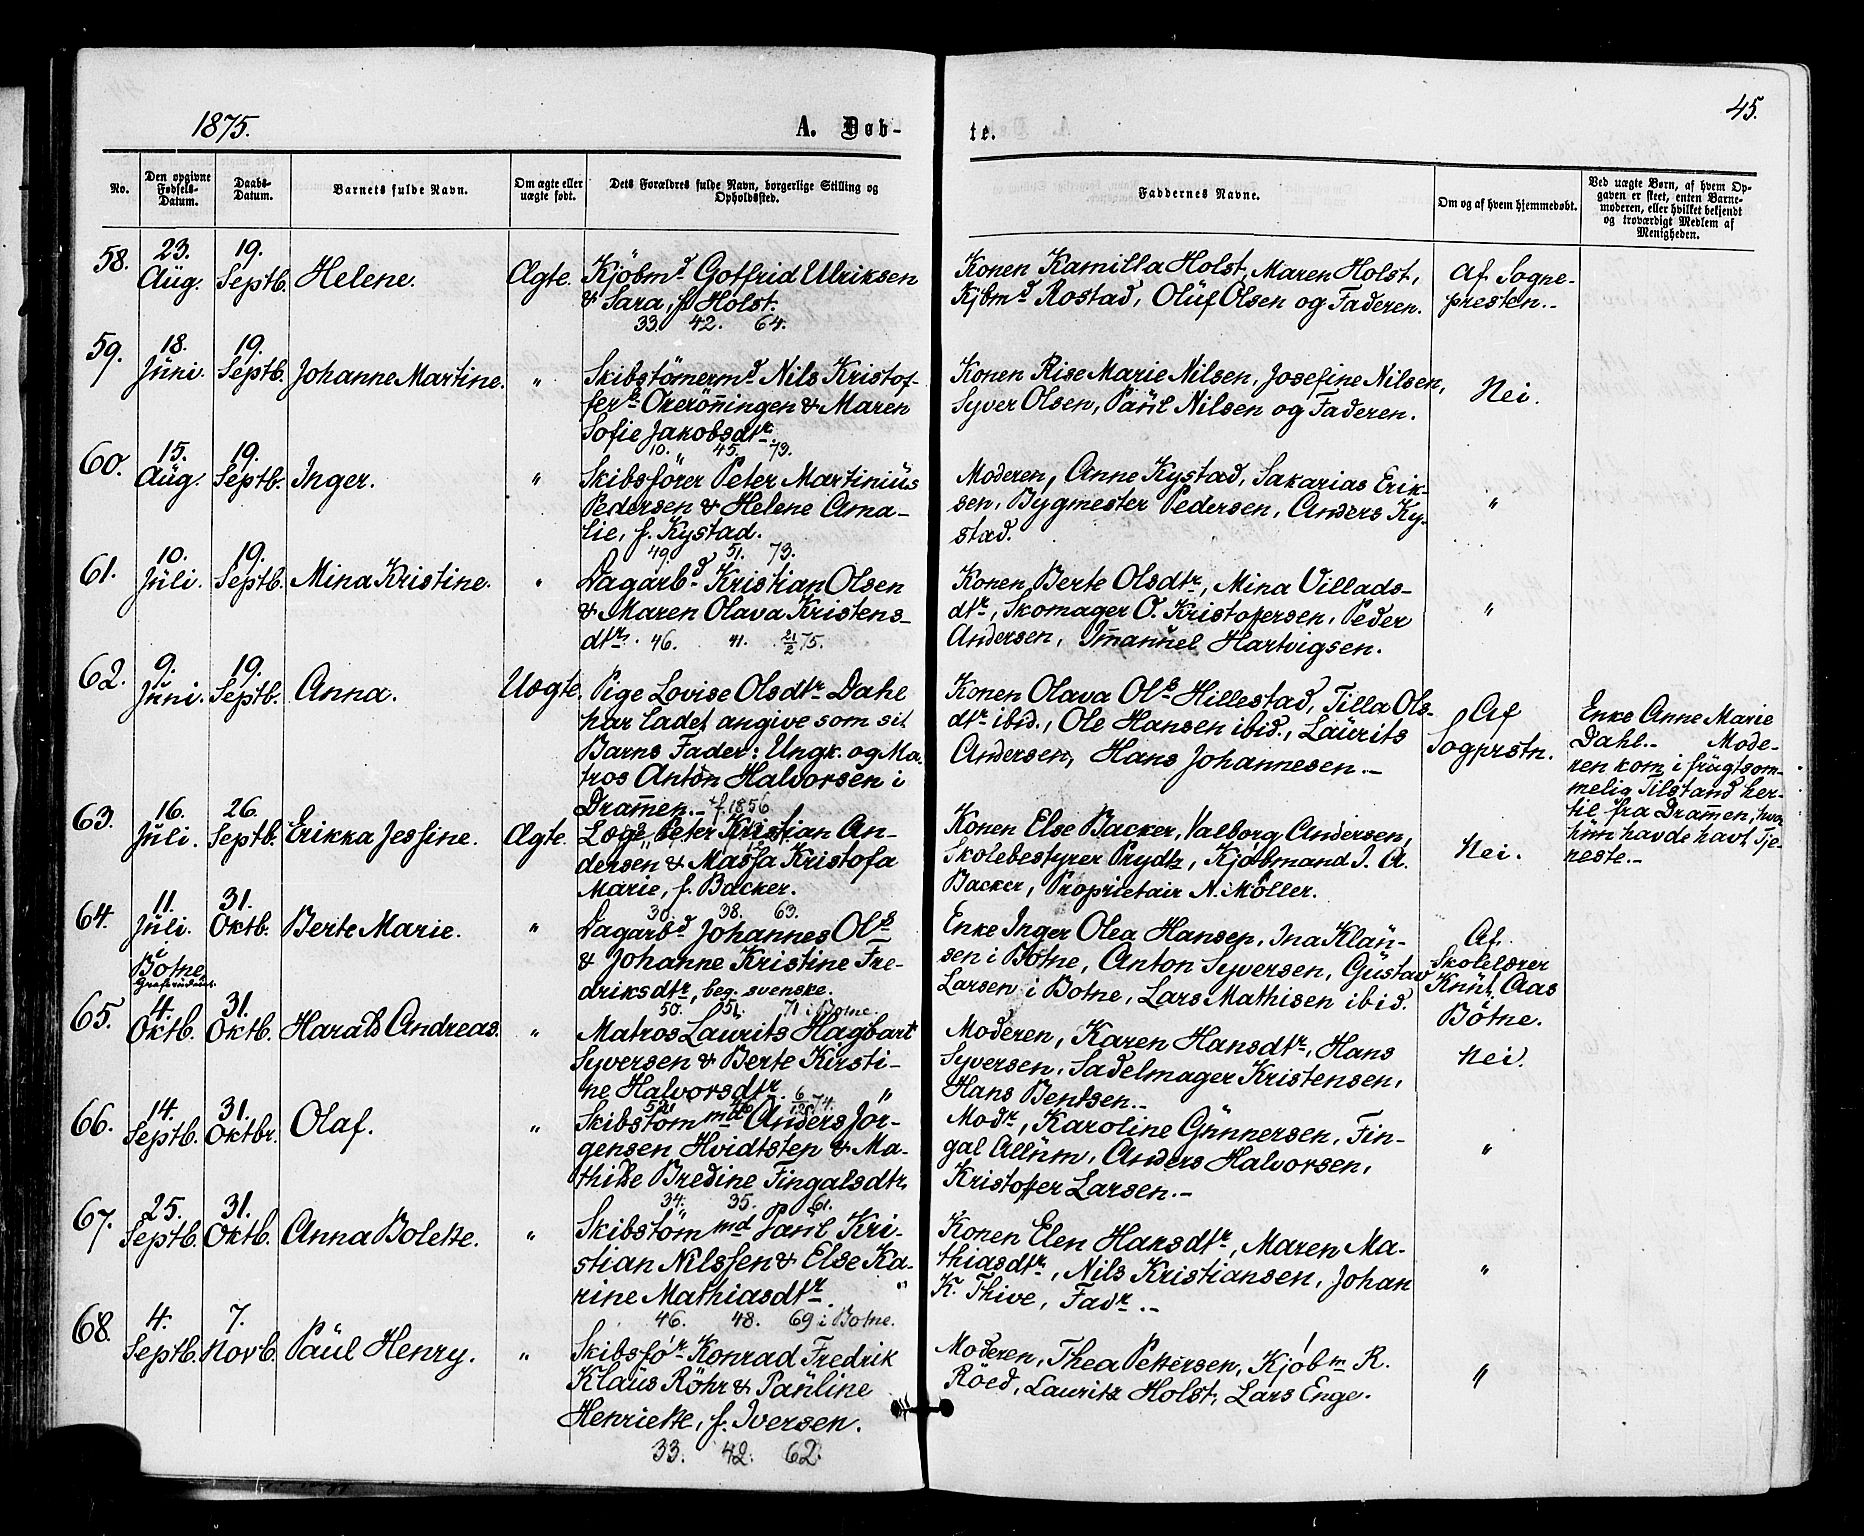 1875.
A. Døb-
te.
45.
No.
Den opgivne Fødsels-Datum.
Daabs-Datum.
Barnets fulde Navn.
Om ægte eller uægte født.
Dets Forældres fulde Navn, borgerlige Stilling og Opholdssted.
Faddernes Navne.
Om og af hvem hjemmedøbt.
Ved uægte Børn, af hvem Op-
gaven er skeet, enten Barne-
moderen, eller hvilket bekjendt
og troværdigt Medlem af
Menigheden.
58. 23. Aug. 19. Septb. Helene. Ægte.
Kjöbmd Gotfrid Ulriksen
& Sara, f. Holst.
33. 42. 64.
Konen Kamilla Holst, Maren Holst,
Kjbmd Rostad, Oluf Olsen og Faderen.
Af Sogne-
presten.-
59. 18. Juni. 19. Septb. Johanne Martine. "
Skibstömermd Nils Kristof-
fers Oreröningen & Maren
Sofie Jakobsdtr.
10. 45. 73.
Konen Rise Marie Nilsen, Josefine Nilsen,
Syver Olsen, Paul Nilsen og Faderen.
Nei.
60. 15. Aug. 19. Septb. Inger. "
Skibsförer Peter Martinius
Pedersen & Helene Ama-
lie, f. Kystad.
49. 51. 73.
Moderen, Anne Kystad, Sakarias Erik-
sen, Bygmester Pedersen, Anders Ky-
stad.
"
61. 10. Juli. 19. Septb. Mina Kristine. "
Dagarbd Kristian Olsen
& Maren Olava Kristens-
dtr. 46. 41. 21/2 75.
Konen Berte Olsdtr, Mina Villads-
dtr, Skomager O. Kristofersen, Peder
Andersen, Imanuel Hartvigsen.
"
62. 9. Juni. 19. Septb. Anna. Uægte.
Pige Lovise Olsdtr Dahl
har ladet angive som sit
Barns Fader: Ungk. og Ma-
tros Anton Halvorsen i
Dramen.- f. 1856
Konen Olava Ols Hillestad, Tilla Ols-
dtr ibid., Ole Hansen ibid., Laurits
Andersen, Hans Johannesen.-
Af
Sogprstn.
Enke Anne Marie
Dahl.- Mode-
ren kom i frugtsom-
melig Tilstand her-
til fra Dramen, hvor
hun havde havt Tje-
neste.-
63. 16. Juli. 26. Septb. Erikka Jessine. Ægte.
Læge Peter Kristian An-
dersen & Massa Kristofa
Marie, f. Backer.
30. 38. 63.
Konen Else Backer, Valborg Andersen,
Skolebestyrer Prydz, Kjøbmand J. A.
Backer, Proprietair N. Möller.
Nei.
64. 11. Juli. i Botne 31. Oktb. Berte Marie. "
Dagarbd Johannes Ols
& Johanne Kristine Fre-
driksdtr, beg. svenske.
50. 51. 71 i Botne.
Enke Inger Olea Hansen, Ina Klau-
sen i Botne, Anton Syversen, Gustav
Larsen i Botne, Lars Mathisen ibid.
Af
Skolelærer
Knut Aas
Botne.
65. 4. Oktb. 31. Oktb. Harald Andreas. "
Matros Laurits Hagbart
Syversen & Berte Kirsti-
ne Halvorsdtr. 6/12 74. "
Moderen, Karen Hansdtr, Hans
Syversen, Sadelmager Kristensen,
Hans Bentsen.-
Nei.
66. 14. Septb. 31. Oktbr. Olaf. "
Skibstömmd Anders Jör-
gensen Hvidtsten & Ma-
thilde Bredine Fingalsdtr.
34. 35. 61.
Modr, Karoline Gunnersen, Fin-
gal Allum, Anders Halvorsen,
Kristoffer Larsen.-
"
67. 25. Septb. 31. Oktb. Anna Bolette. "
Skibstömmd Paul Kri-
stian Nilssen & Else Ka-
rine Mathiasdtr. "
46. 48. 69 i Botne.
Konen Elen Hansdtr, Maren Ma-
thiasdtr, Nils Kristiansen, Johan
K. Thive, Fadr.-
"
68. 4. Septb. 7. Novb. Paul Henry. "
Skibsför Konrad Fredrik
Klaus Röhr & Pauline
Henriette, f. Iversen.
33. 42. 62.
Moderen, Thea Pettersen, Kjöbm R.
Röed, Lauritz Holst, Lars Enge.
"